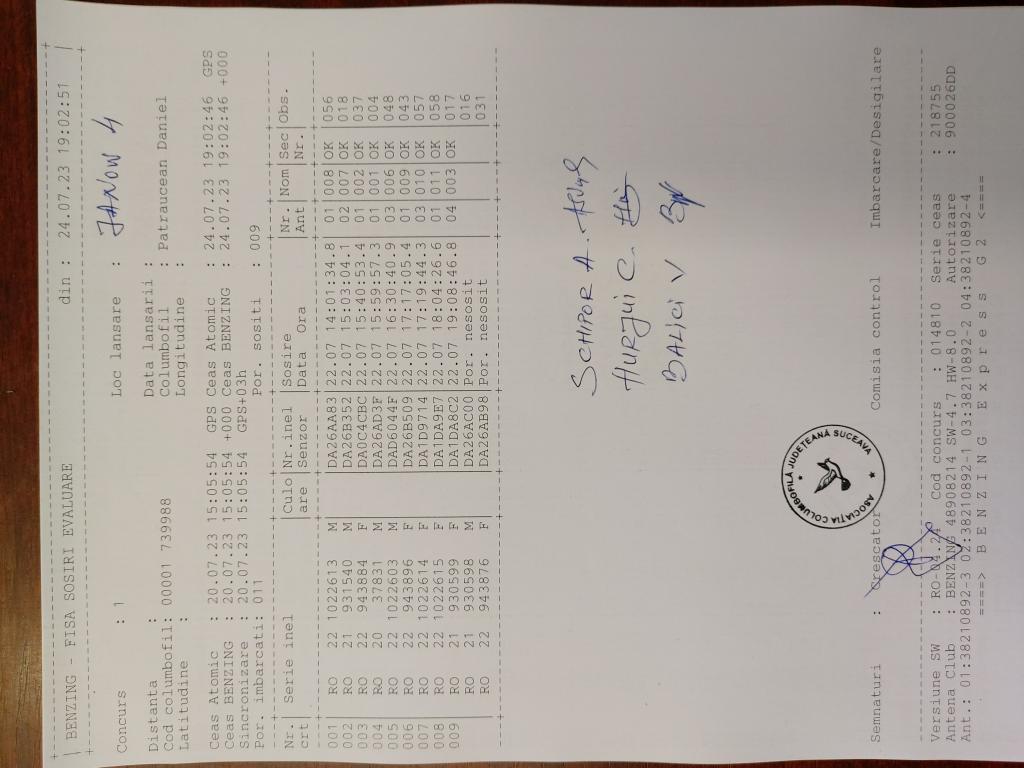 BENZING - FISA SOSIRI EVALUARE din : 24.07.23 19:02:51
Concurs : 1 Loc lansare : JANOW 4
Distanta : Data lansarii :
Cod columbofil: 00001 739988 Columbofil : Patraucean Daniel
Latitudine : Longitudine :
Ceas Atomic : 20.07.23 15:05:54 GPS Ceas Atomic : 24.07.23 19:02:46 GPS
Ceas BENZING : 20.07.23 15:05:54 +000 Ceas BENZING : 24.07.23 19:02:46 +000
Sincronizare : 20.07.23 15:05:54 GPS+03h
Por. imbarcati: 011 Por. sositi : 009
Nr. | Serie inel | Culo | Nr.inel | Sosire | Nr. | Nom | Sec | Obs.
crt | | are | Senzor | Data Ora | Ant | | Nr. |
001 | RO 22 1022613 M | | DA26AA83 | 22.07 14:01:34.8 | 01 | 008 | OK | 056
002 | RO 21 931540 M | | DA26B352 | 22.07 15:03:04.1 | 02 | 007 | OK | 018
003 | RO 22 943884 F | | DA0C4CBC | 22.07 15:40:53.4 | 01 | 002 | OK | 037
004 | RO 20 37831 M | | DA26AD3F | 22.07 15:59:57.3 | 01 | 001 | OK | 004
005 | RO 22 1022603 M | | DAD6044F | 22.07 16:30:40.9 | 03 | 006 | OK | 048
006 | RO 22 943896 F | | DA26B509 | 22.07 17:17:05.4 | 01 | 009 | OK | 043
007 | RO 22 1022614 F | | DA1D9714 | 22.07 17:19:44.3 | 03 | 010 | OK | 057
008 | RO 22 1022615 F | | DA1DA9E7 | 22.07 18:04:26.6 | 01 | 011 | OK | 058
009 | RO 21 930599 F | | DA1DA8C2 | 22.07 19:08:46.8 | 04 | 003 | OK | 017
RO 21 930598 M | | DA26AC00 | Por. nesosit | | | | 016
RO 22 943876 F | | DA26AB98 | Por. nesosit | | | | 031
SCHIPOR A.
HURJUI C.
BALICI V
ASOCIAȚIA COLUMBOFILĂ JUDEȚEANĂ SUCEAVA
Semnaturi : Crescator Comisia control Imbarcare/Desigilare
Versiune SW : RO-04.24 Cod concurs : 014810 Serie ceas : 218755
Antena Club : BENZING 48908214 SW-4.7 HW-8.0 Autorizare : 900026DD
Ant.: 01:38210892-3 02:38210892-1 03:38210892-2 04:38210892-4
====> B E N Z I N G E x p r e s s G 2 <====